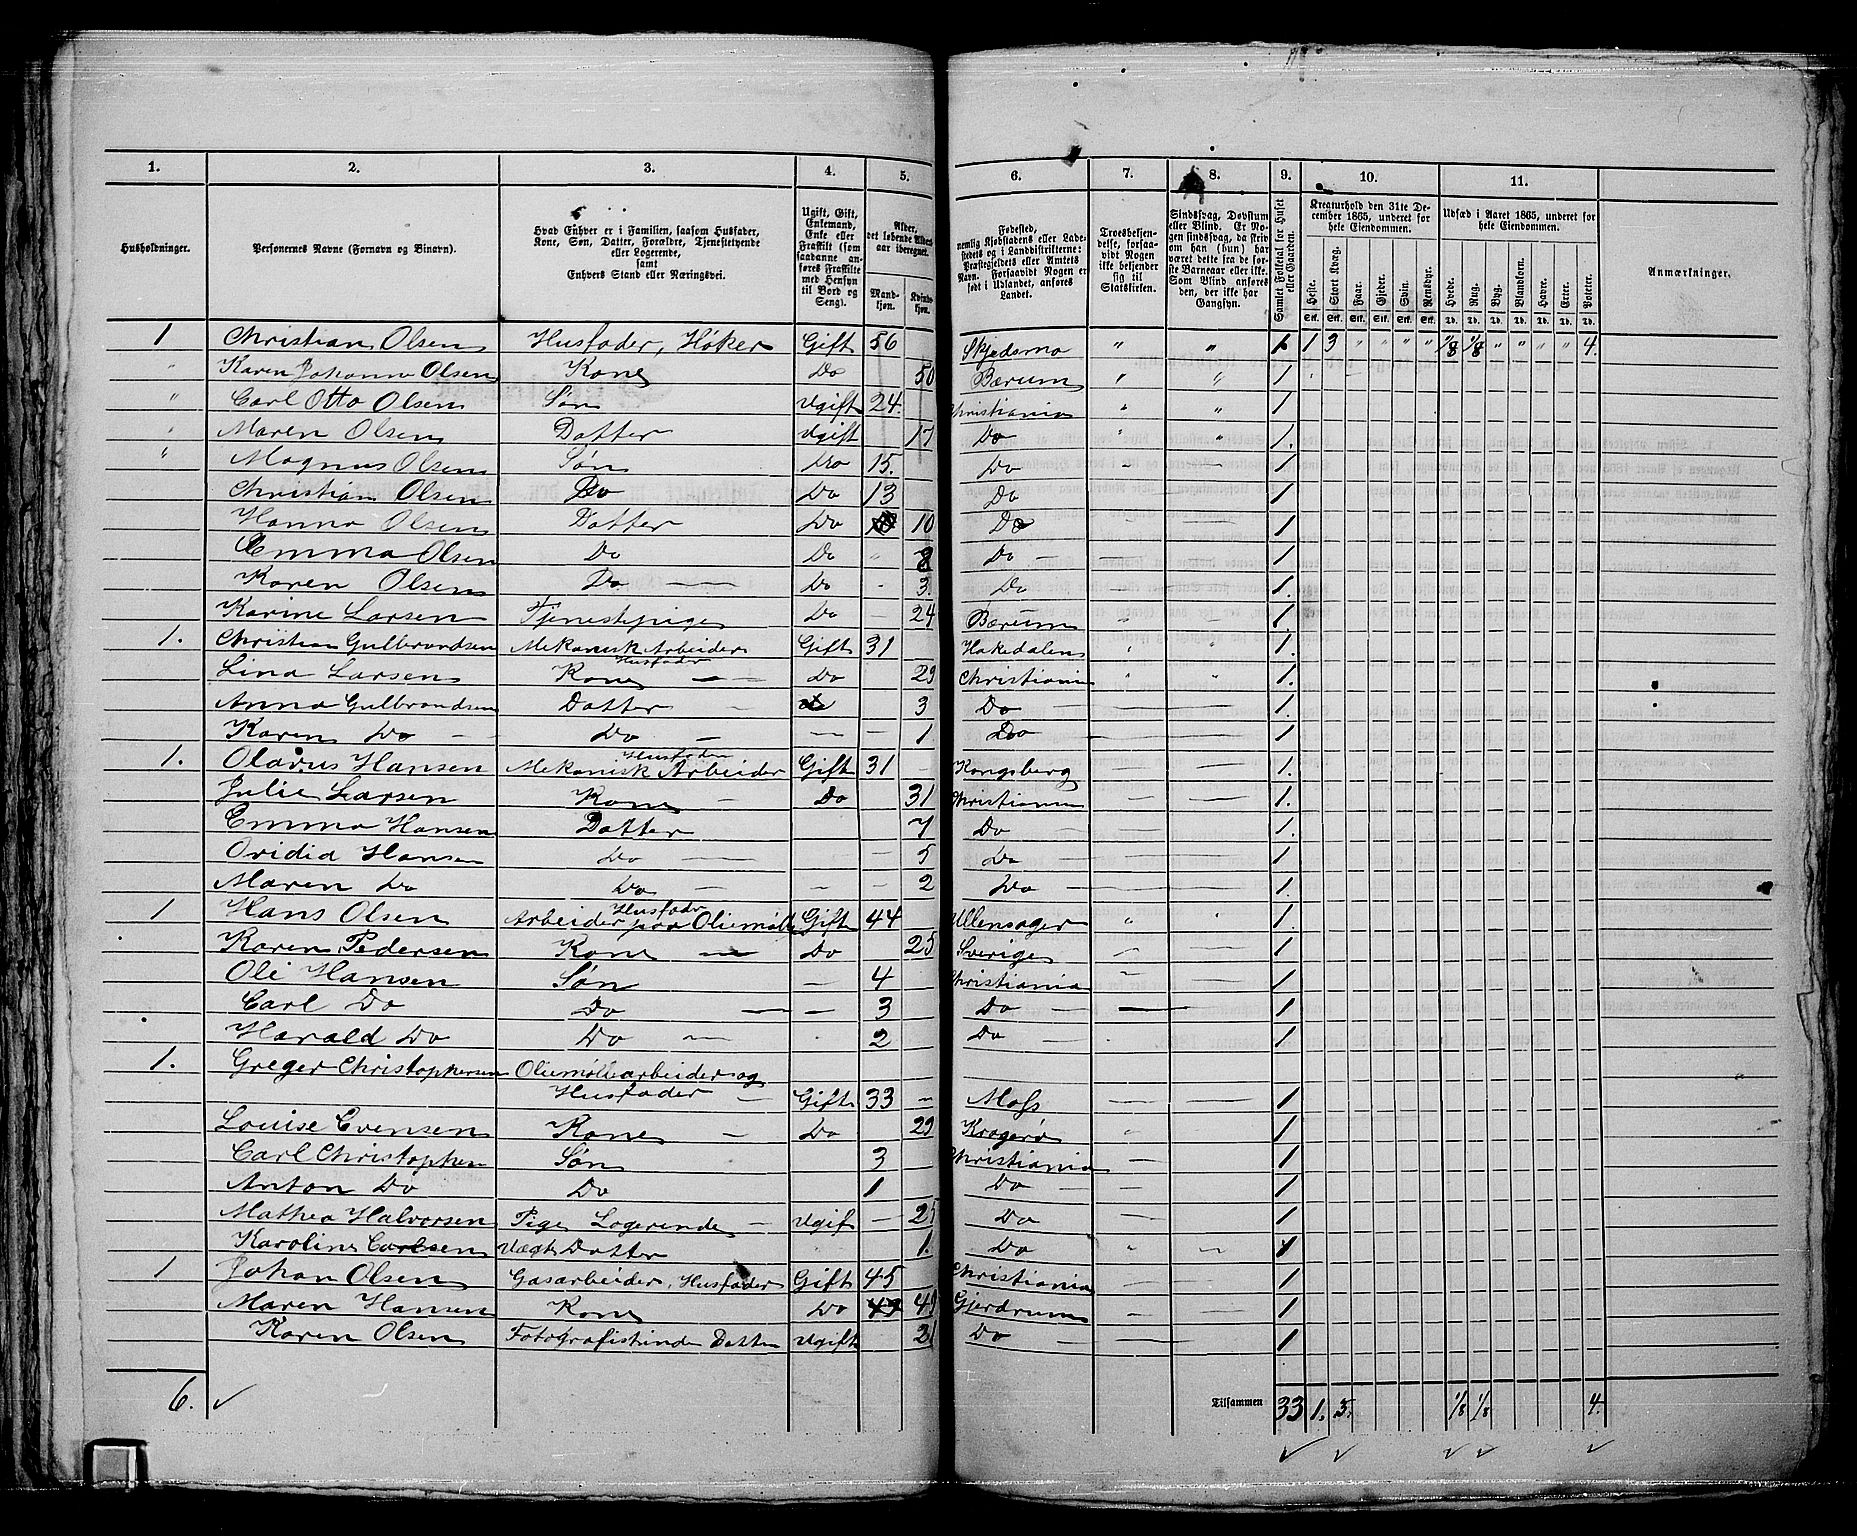 1. 2. 3. 4. 5. 6. 7. 8. 9. 10. 11.
Husholdninger.
Personernes Navne (Fornavn og Binavn).
Hvad Enhver er i Familien, saasom Husfader,
Kone, Søn, Datter, Forældre, Tjenestetyende
eller Logerende,
samt
Enhvers Stand eller Næringsvei.
Ugift, Gift,
Enkemand,
Enke eller
Fraskilt (som
saadanne an-
føres Fraskilte
med Hensyn
til Bord og
Seng).
Alder,
det løbende Alders-
aar iberegnet.
Mand-
kjøn.
Kvinde-
kjøn.
Fødested,
nemlig Kjøbstadens eller Lade-
stedets og i Landdistrikterne:
Præstegjeldets eller Amtets
Navn. Forsaavidt Nogen er
født i Udlandet, anføres
Landet.
Troesbekjen-
delse, forsaa-
vidt Nogen
ikke bekjender
sig til
Statskirken.
Sindssvag, Døvstum
eller Blind. Er No-
gen sindssvag, da skriv
om han (hun) har
været dette fra de før-
ste Barneaar eller ikke.
Som Blind anføres
den, der ikke har
Gangsyn.
Samlet Folketal for Huset
eller Gaarden.
Kreaturhold den 31te De-
cember 1865, underet for
hele Eiendommen.
Heste. Stort Kvæg. Faar. Gjeder. Svin. Rensdyr.
Stk. Stk. Stk. Stk. Stk. Stk.
Udsæd i Aaret 1865, underet for
hele Eiendommen.
Hvede. Rug. Byg. Blandkorn. Havre. Erter. Poteter.
Td. Td. Td. Td. Td. Td. Td.
Anmærkninger.
1 Christian Olsen Husfader, Høker Gift 56 Skjedsmo " " 1 1 3 " " " " 1/8 1/8 " " " " 4.
" Karen Johanne Olsen Kone Do 50 Bærum " " 1
" Carl Otto Olsen Søn Ugift 24. Christiania " " 1
" Maren Olsen Datter Ugift 17 Do " " 1.
" Magnus Olsen Søn Do 15. Do 1
Christian Olsen Do Do 13 Do 1
Hanna Olsen Datter Do 10 Do 1
Emma Olsen Do Do " 8 Do 1
Karen Olsen Do Do - 3. Do 1.
Karine Larsen Tjenestepige Do - 24 Bærum 1
1. Christian Gulbrandsen Mekanisk Arbeider Gift 31 Hakedalen " " 1.
Husfader
Lina Larsen Kone Do 29 Christiania " " 1.
Anna Gulbrandsen Datter 3 Do 1.
Karen Do Do 1 Do 1
Husfader
1. Olavus Hansen Mekanisk Arbeider Gift 31 Kongsberg 1.
Julie Larsen Kone Do 31 Christiania 1.
Emma Hansen Datter 7 Do 1.
Ovidia Hansen Do 5 Do 1
Maren Do Do 2 Do 1.
Husfader
1 Hans Olsen Arbeider paa Oliemølle Gift 44 Ullensager " " 1.
Karen Pedersen Kone Do 25 Sverige 1
Oli Hansen Søn 4 Christiania 1
Carl Do Do 3 Do 1
Harald Do Do 2 Do 1
1. Greger Christophersen Oliemøllearbeider og
Husfader Gift 33 Moss 1
Louise Evensen Kone Do 29 Kragerø 1
Carl Christophersen Søn 3 Christiania 1
Anton Do Do 1 Do 1
Mathea Halvorsen Pige Logerende Ugift 25 Do 1
Karoline Carlsen Uægt Datter 1. Do 1
1 Johan Olsen Gasarbeider, Husfader Gift 45 Christiania 1
Maren Hansen Kone Do 49 Gjerdrum 1
Karen Olsen Fotografistinde Datter Ugift 21 Do 1
6. Tilsammen 33 1. 3. 1/8 1/8 4.